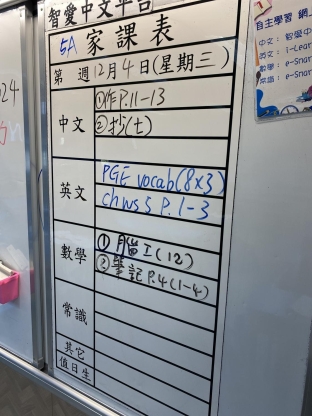 智愛中文平台
5A 家課表
第 週 12月4日(星期三)
中文
①作P.11-13
②抄(七)
英文
PGE vocab(8x3)
ch ws 5 P.1-3
數學
① 腦工(12)
② 筆記 P.4(1-4)
常識
其它
值日生
24
自主學習 網上
中文: 智愛中
英文: i-Lear
數學: e-Smar
常識: e-Smar